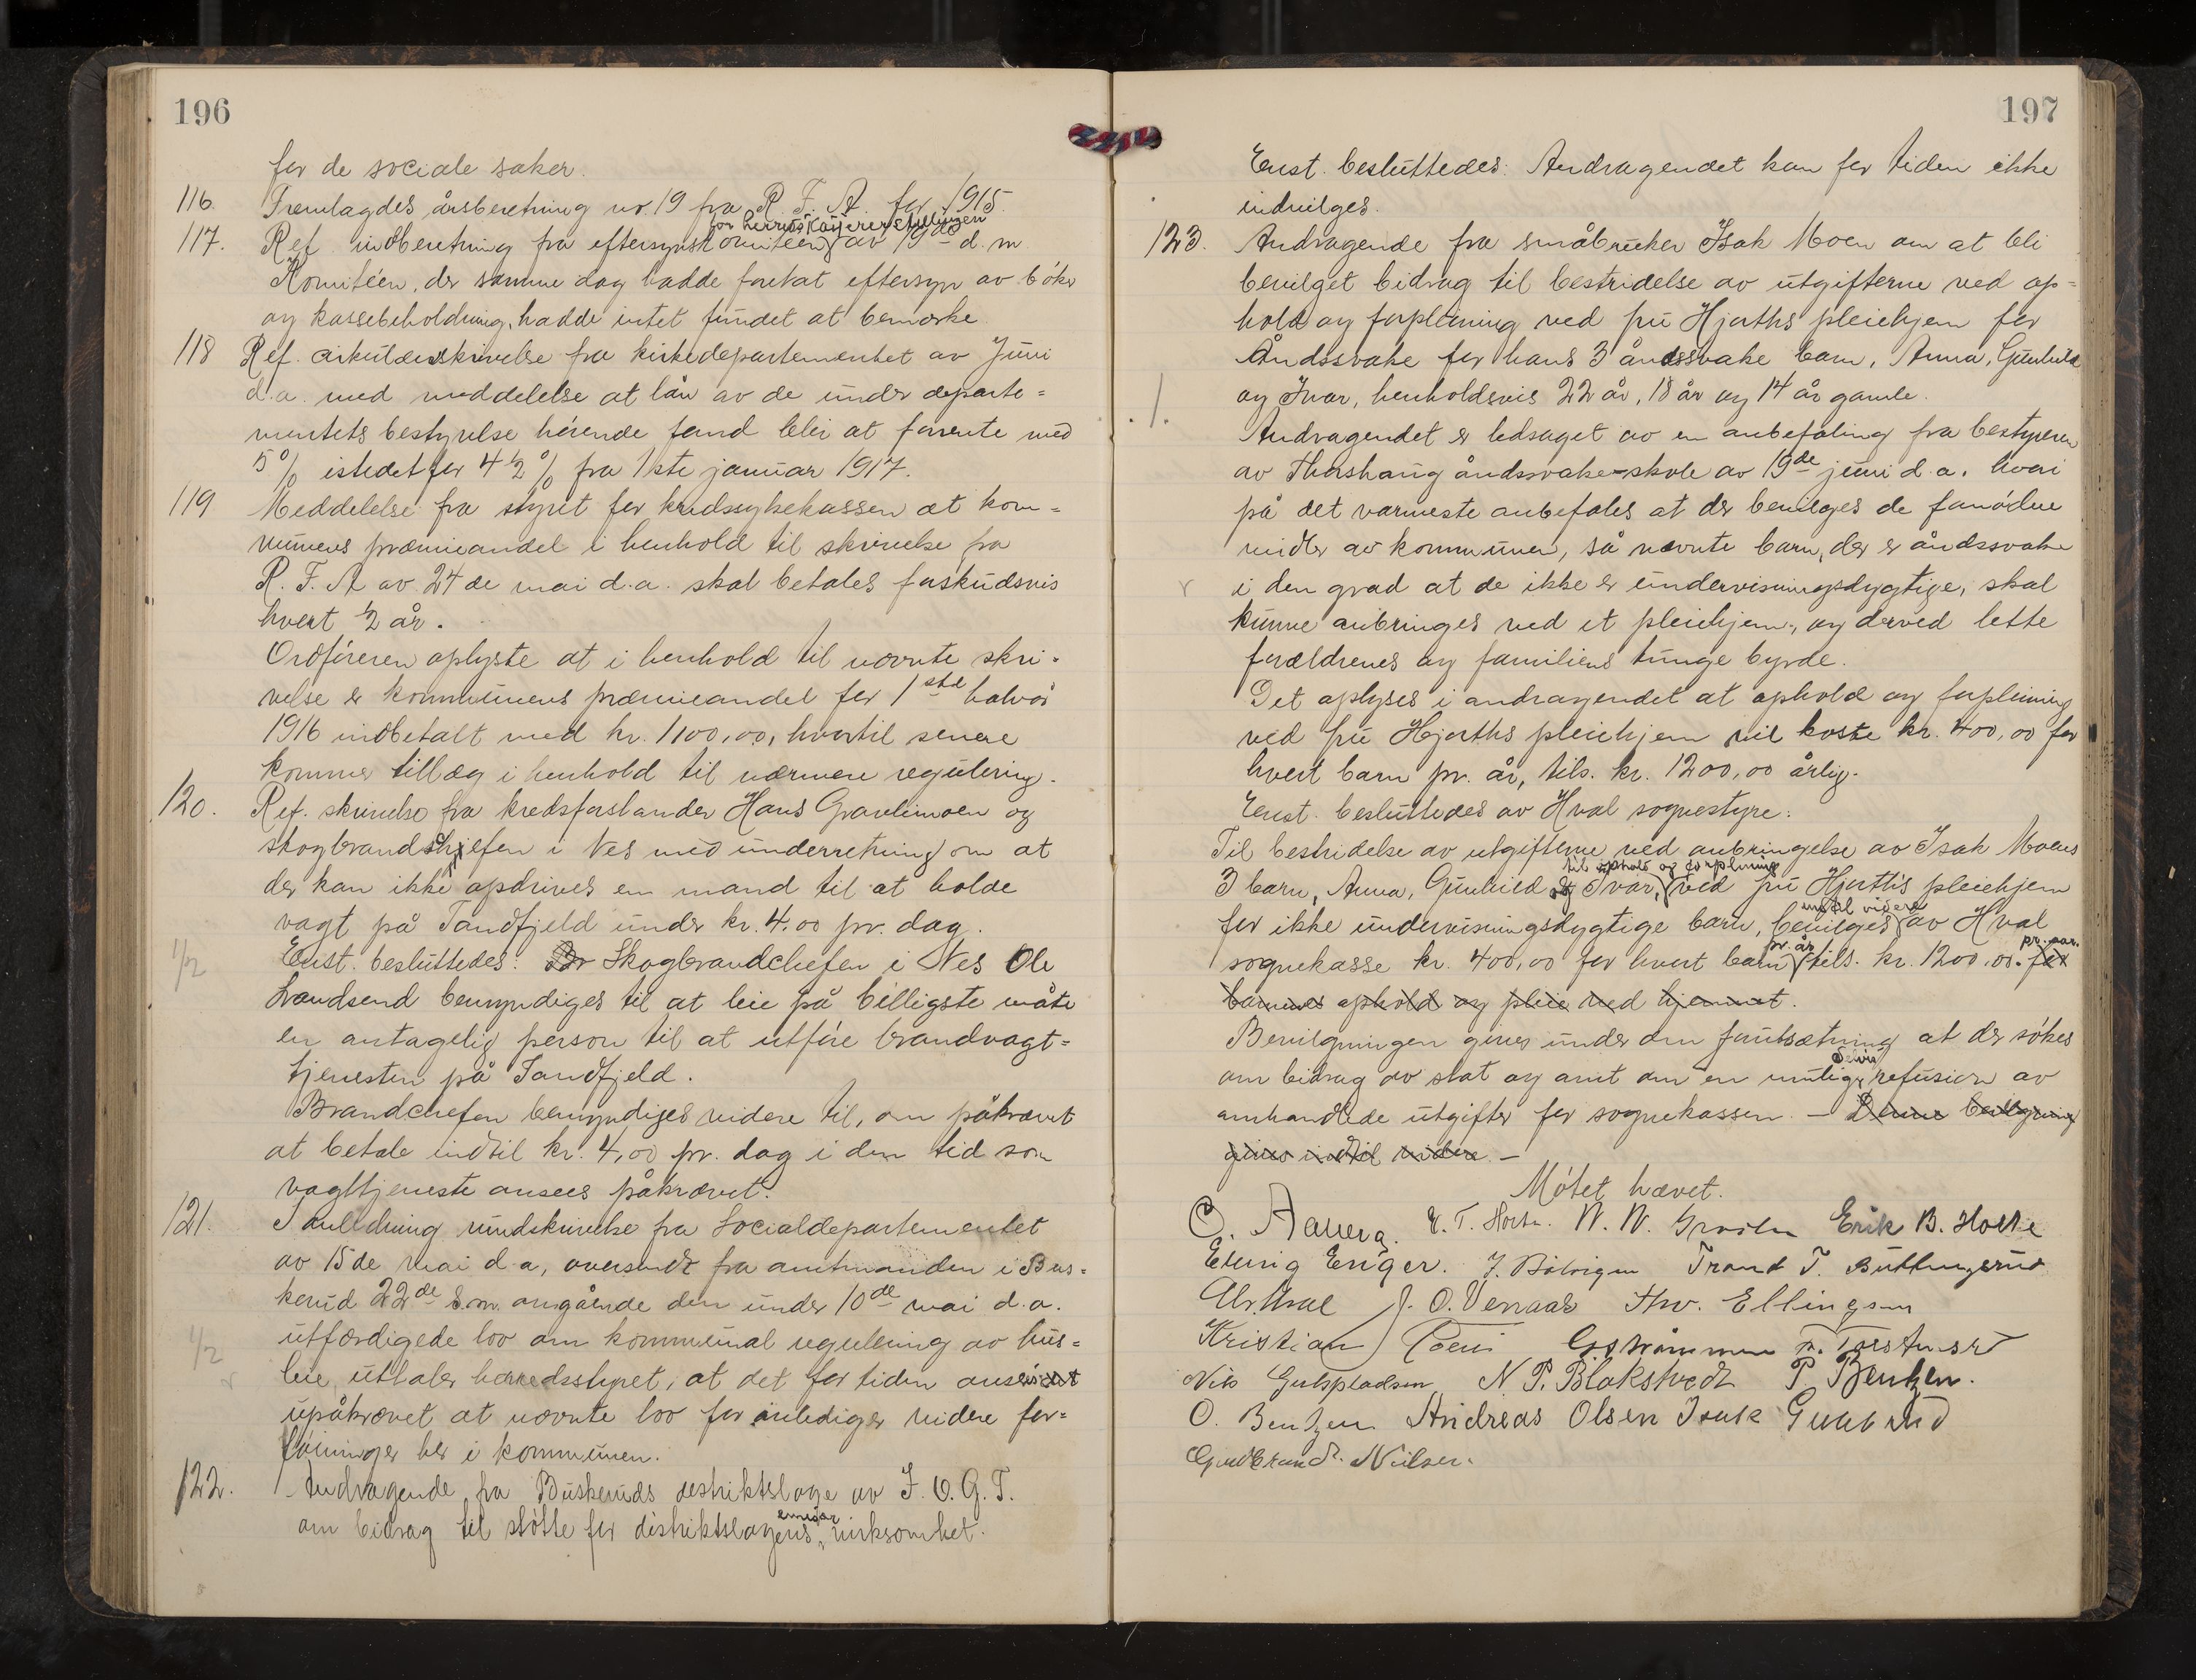 196
for de sociale saker.
116. Fremlagdes årsberetning nr. 19 fra R. F. A. for 1915.
for herredskasjererstillingen
117. Ref. indberetning fra eftersynskomiteen av 19de d. m
Komitéen, der samme dag hadde foretat eftersyn av bøker
og kassebeholdning, hadde intet fundet at bemærke
118 Ref. cirkulærskrivelse fra kirkedepartementet av Juni
d.a. med meddelelse at lån av de under departe=
mentets bestyrelse hørende fond blir at forrente med
5 % istedetfor 4 1/2 % fra 1ste januar 1917.
119 Meddelelse fra styret for kredssykekassen at kom=
munens præmieandel i henhold til skrivelse fra
R. F. A av 24de mai d.a. skal betales forskudsvis
hvert 1/2 år.
Ordføreren oplyste at i henhold til nævnte skri=
velse er kommunens præmieandel for 1ste halvår
1916 indbetalt med kr. 1100,00, hvortil senere
kommer tillæg i henhold til nærmere regulering.
120. Ref. skrivelse fra kredsforstander Hans Gravlimoen og
skogbrandchefen i Nes med underretning om at
der kan ikke opdrives en mand til at holde
vagt på Tandfjeld under kr. 4.00 pr. dag.
1/2 Enst. besluttedes: Skogbrandchefen i Nes Ole
Trandsend bemyndiges til at leie på billigste måte
en antagelig person til at utføre brandvagt=
tjenesten på Tandfjeld.
Brandchefen bemyndiges videre til, om påkrævet
at betale indtil kr. 4,00 pr. dag i den tid som
vagttjeneste ansees påkrævet.
121. I anledning rundskrivelse fra Socialdepartementet
av 15de mai d.a, oversendt fra amtmanden i Bus=
kerud 22de s.m. angående den under 10de mai d.a.
utfærdigede lov om kommunal regulering av hus=
1/2
leie uttaler herredsstyret, at det for tiden ansees
upåkrævet at nævnte lov foranlediger videre for=
føininger her i kommunen.
122. Andragende fra Buskeruds distriktsloge av I. O. G. T.
emisær
om bidrag til støtte for distriktslogens virksomhet.
197
Enst. besluttedes: Andragendet kan for tiden ikke
indvilges.
123. Andragende fra småbruker Isak Moen om at bli
bevilget bidrag til bestridelse av utgifterne ved op=
hold og forpleining ved fru Hjorths pleiehjem for
Åndssvake for hans 3 åndssvake barn, Anna, Gunhild
og Ivar, henholdsvis 22 år, 18 år og 14 år gamle.
1.
Andragendet er ledsaget av en anbefaling fra bestyreren
av Thorshaug åndssvake-skole av 19de juni d.a. hvori
på det varmeste anbefales at der bevilges de fornødne
midler av kommunen, så nævnte barn, der er åndssvake
i den grad at de ikke er undervisningsdygtige, skal
kunne anbringes ved et pleiehjem, og derved lette
forældrenes og familiens tunge byrde.
Det oplyses i andragendet at ophold og forpleining
ved fru Hjorths pleiehjem vil koste kr. 400,00 for
hvert barn pr. år, tils. kr. 1200,00 årlig.
Enst. besluttedes av Hval sognestyre:
Til bestridelse av utgifterne ved anbringelse av Isak Moens
til ophold og forpleining
3 barn, Anna, Gunhild og Ivar, ved fru Hjorth's pleiehjem
indtil videre
for ikke undervisningsdygtige barn, bevilges av Hval
pr. år pr. aar.
sognekasse kr. 400,00 for hvert barn tils. kr. 1200,00. for
barnenes ophold og pleie ved hjemmet.
Bevilgningen gives under den forutsætning at der søkes
delvis
om bidrag av stat og amt om en mulig refusion av
omhandlede utgifter for sognekassen. — Denne bevilgning
gives indtil videre. —
Møtet hævet.
O. Aavera. E. T. Horte. N. N. Erik B. Horte
Elling Enger. J. Trond T. Buttingsrud
J. O. Venaas Thv. Ellingsen
Kristian
Nils Gulspladsen N P. Blakstvedt P. Bentzen.
O. Bentzen Andreas Olsen Isak Gulbrand
Gudbrand Nielsen.